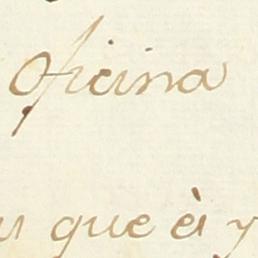 oficina
que èi y